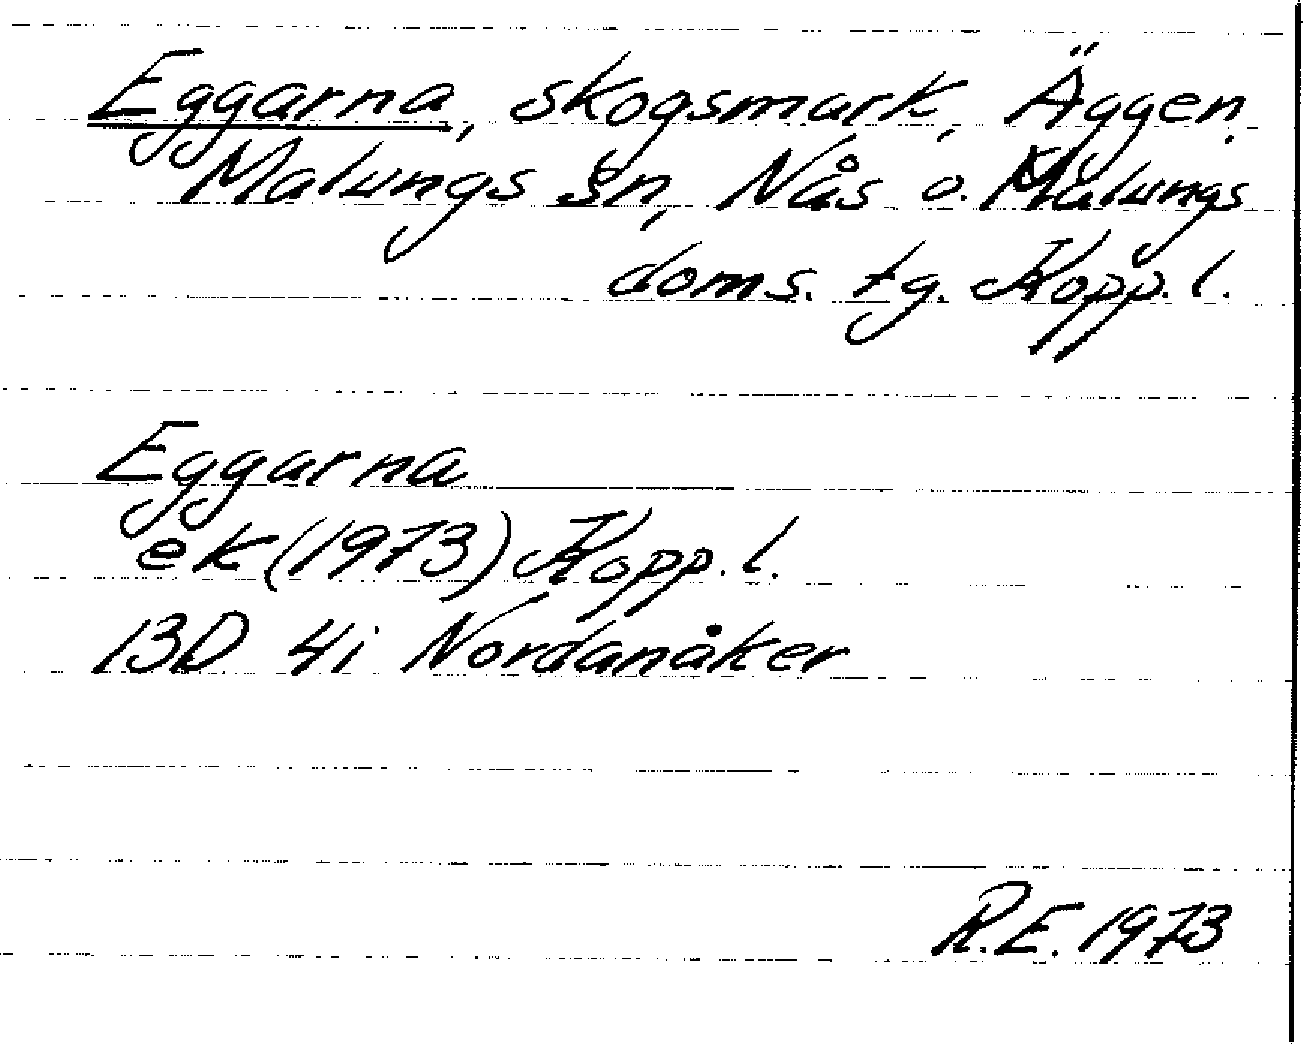 Eggarna, skogsmark, Äggen,
Malungs sn, Nås o. Malungs
doms. tg. Kopp. l.
Eggarna
ek (1973) Kopp. l.
13D 4i Nordanåker
R.E. 1973